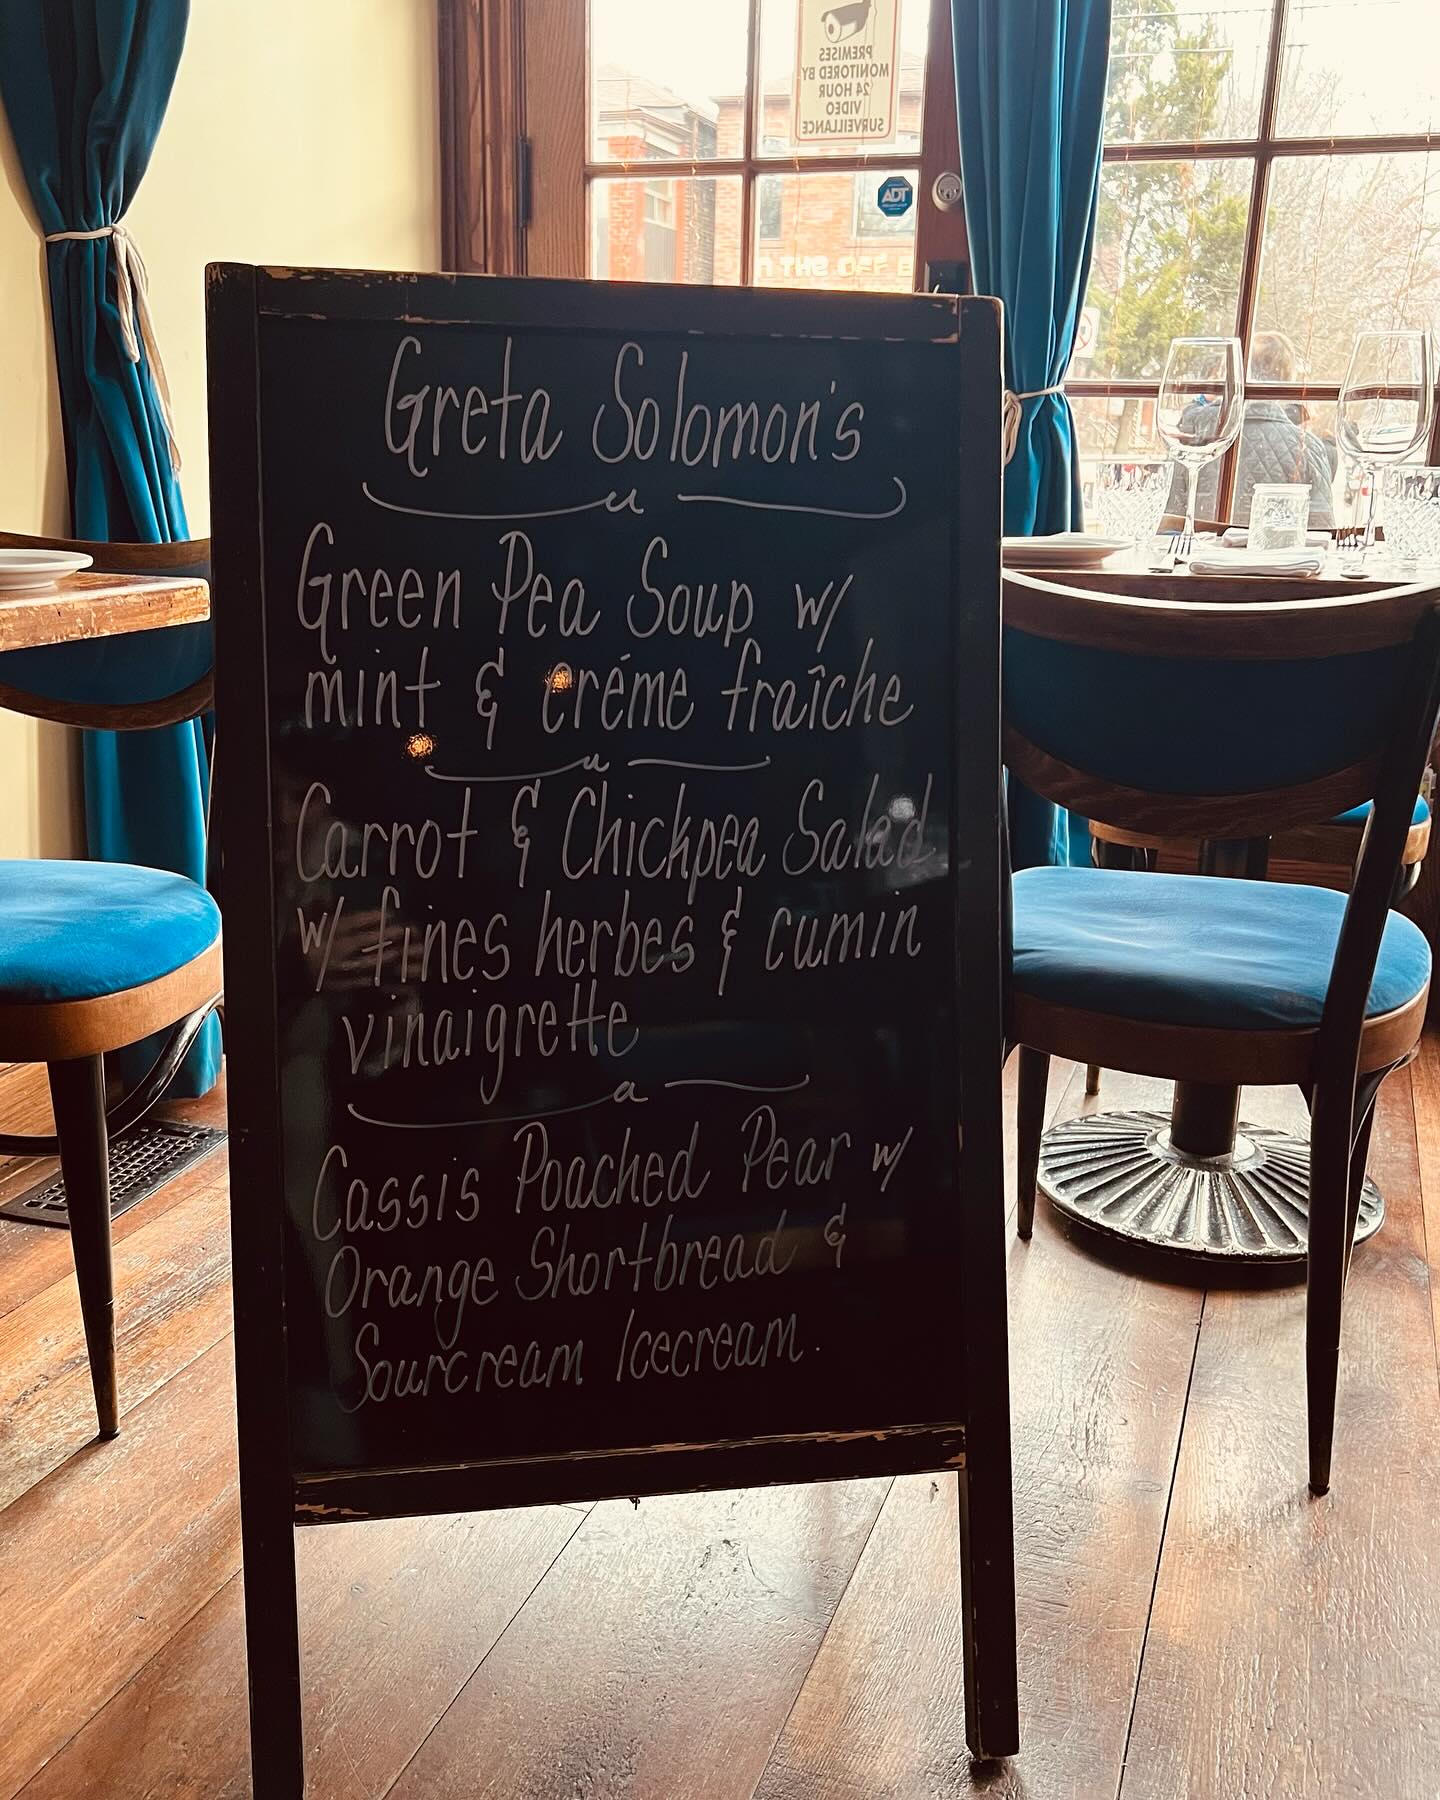 PREMISES
MONITORED BY
24 HOUR
VIDEO
SURVEILLANCE
ADT
Greta Solomon's
Green Pea Soup w/
mint & créme fraîche
Carrot & Chickpea Salad
w/ fines herbes & cumin
vinaigrette
Cassis Poached Pear w/
Orange Shortbread &
Sourcream Icecream.